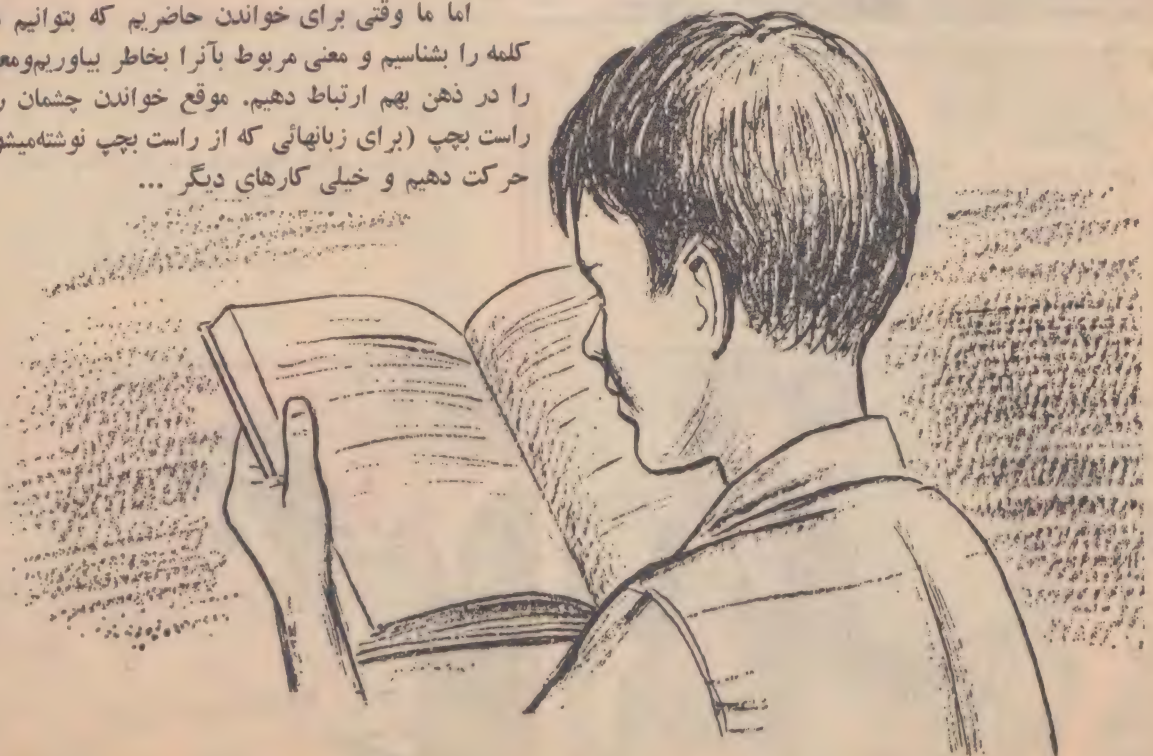 اما ما وقتی برای خواندن حاضریم که بتوانیم
کلمه را بشناسیم و معنی مربوط بآنرا بخاطر بیاوریم‌ومع
را در ذهن بهم ارتباط دهیم. موقع خواندن چشمان ر
راست بچپ (برای زبانهائی که از راست بچپ نوشته‌میشو
حرکت دهیم و خیلی کارهای دیگر ...